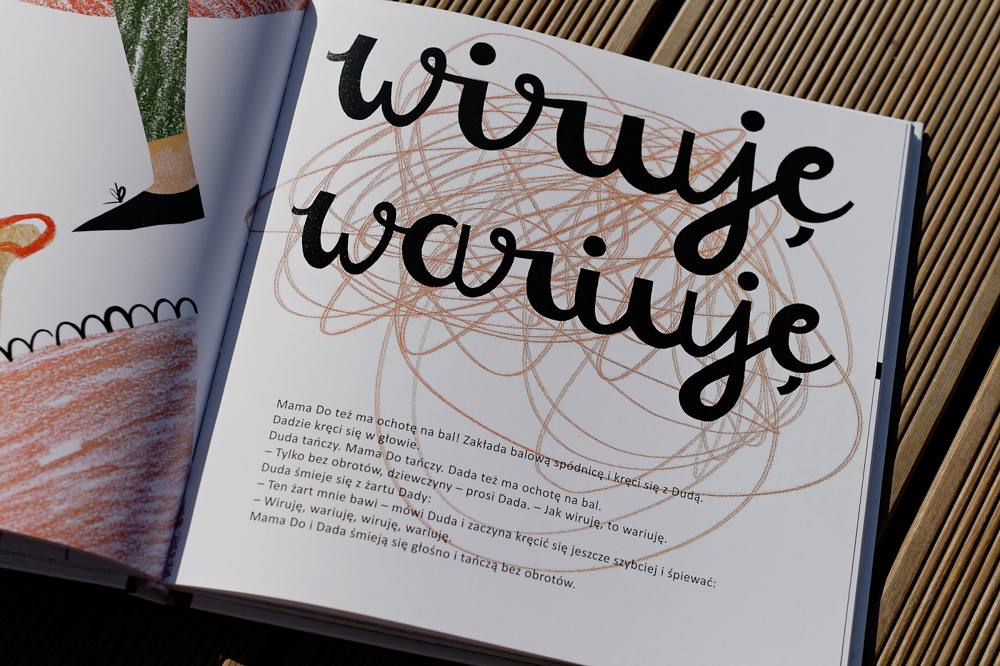 wiruję
wariuję
Mama Do też ma ochotę na bal! Zakłada balową spódnicę i kręci się z Dudą.
Dadzie kręci się w głowie.
Duda tańczy. Mama Do tańczy. Dada też ma ochotę na bal.
– Tylko bez obrotów, dziewczyny – prosi Dada. – Jak wiruję, to wariuję.
Duda śmieje się z żartu Dady:
– Ten żart mnie bawi – mówi Duda i zaczyna kręcić się jeszcze szybciej i śpiewać:
– Wiruję, wariuję, wiruję, wariuję.
Mama Do i Dada śmieją się głośno i tańczą bez obrotów.